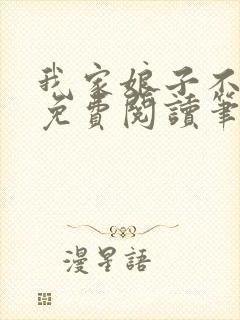 我家娘子不
免費閱讀筆
漫星語